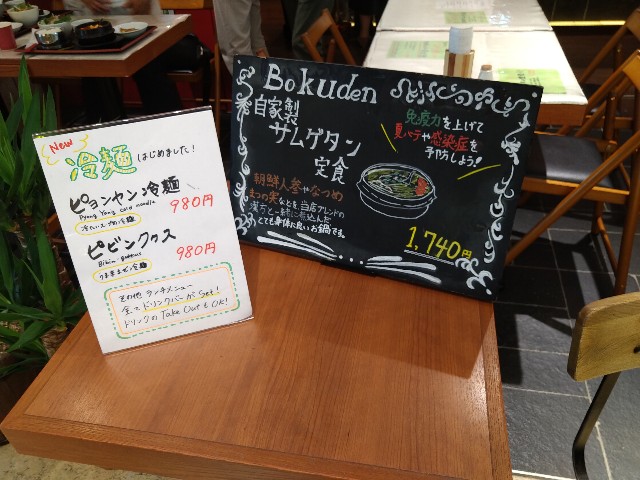 New
冷麺 はじめました!
ピョンヤン冷麺
Pyong Yang cold noodle
980円
ピビンククス
Bibim-gukksu
980円
その他 ランチメニュー
全てドリンクバーがSet!
ドリンクの Take Out も OK!
Bokuden
自家製
サムゲタン
定食
免疫力を上げて
夏バテや感染症を
予防しよう!
朝鮮人参やなつめ
松の実などを当店ブレンドの
漢方と一緒に煮込んだ
とても身体に良いお鍋です。
1,740円